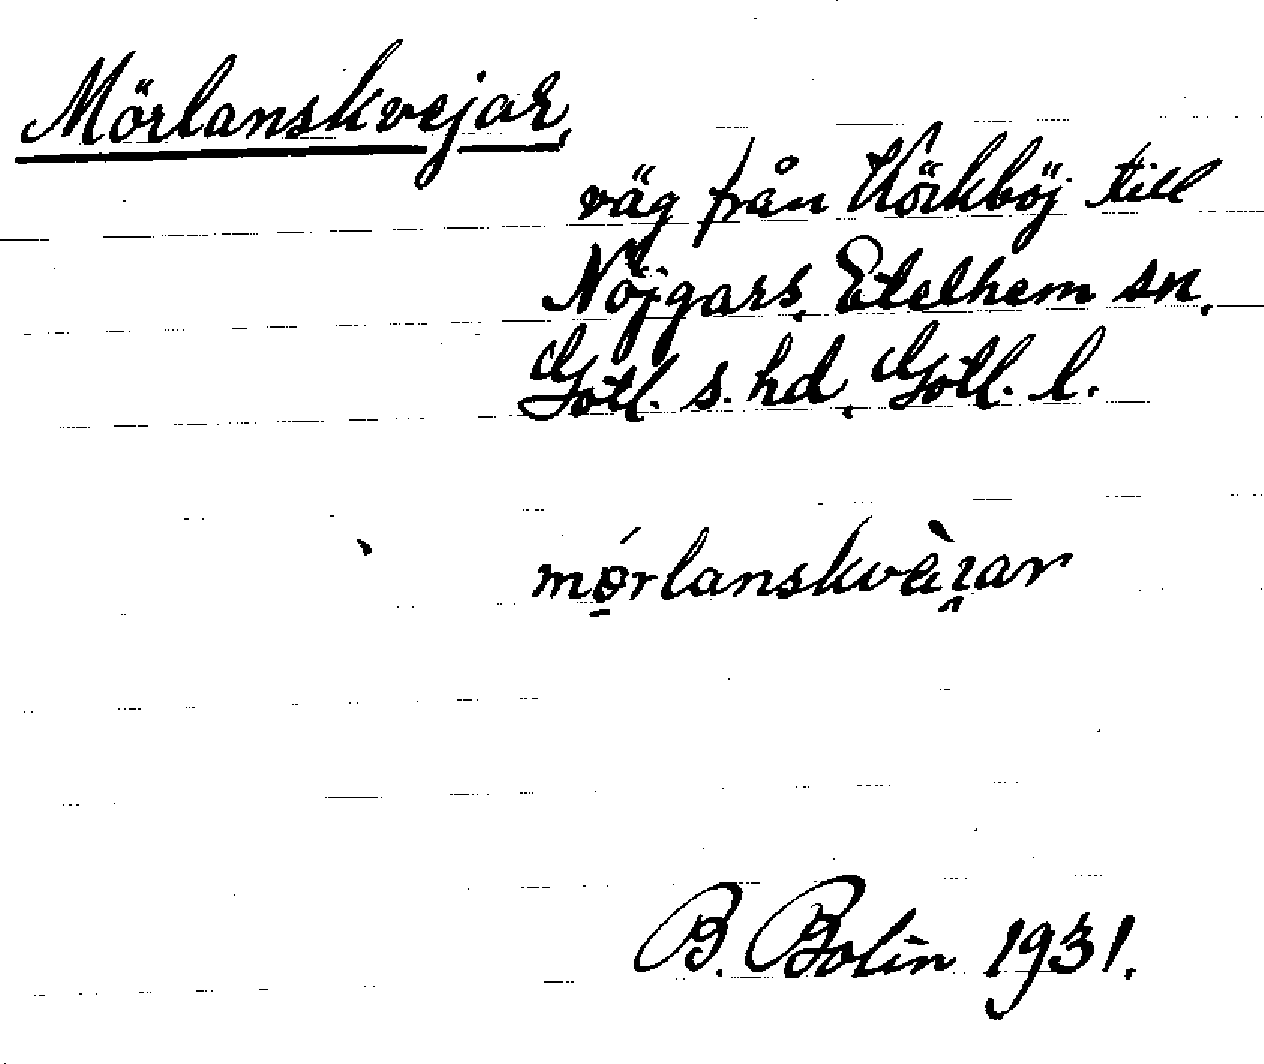 Mörlanskvejar,
väg från Körkböj till
Nöjgars, Etelhem sn,
Gotl. s. hd, Gotl. l.
B. Bolin 1931.